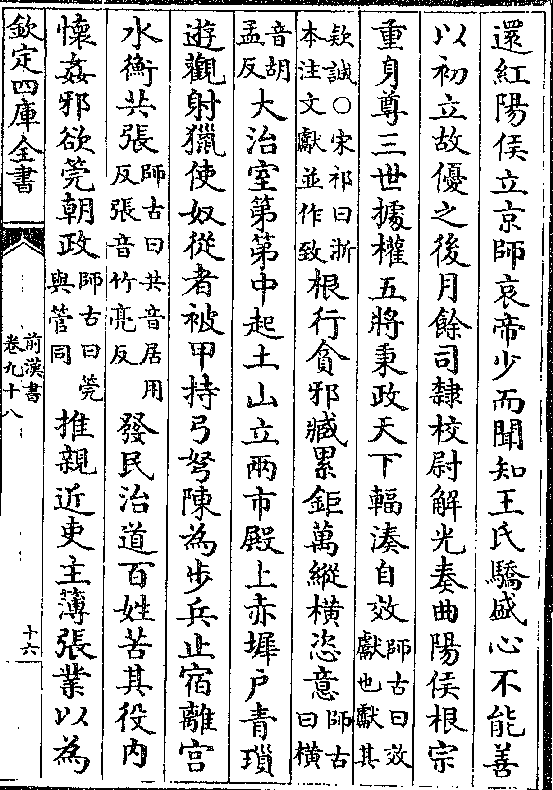 還紅陽侯立京師哀帝少而聞知王氏驕盛心不能善
以初立故優之後月餘司隸校尉解光奏曲陽侯根宗
重身尊三世據權五將秉政天下輻湊自效師古曰效獻也獻其
款誠○宋祁曰浙本注文獻並作致根行貪邪臧累鉅萬縱橫恣意師古曰橫
音胡孟反大治室第第中起土山立兩市殿上赤墀戸青瑣
遊觀射獵使奴從者被甲持弓弩陳為步兵止宿離宮
水衡共張師古曰共音居用反張音竹亮反發民治道百姓苦其役内
懷姦邪欲筦朝政師古曰筦與管同推親近吏主薄張業以為
欽定四庫全書
前漢書
卷九十八
十六